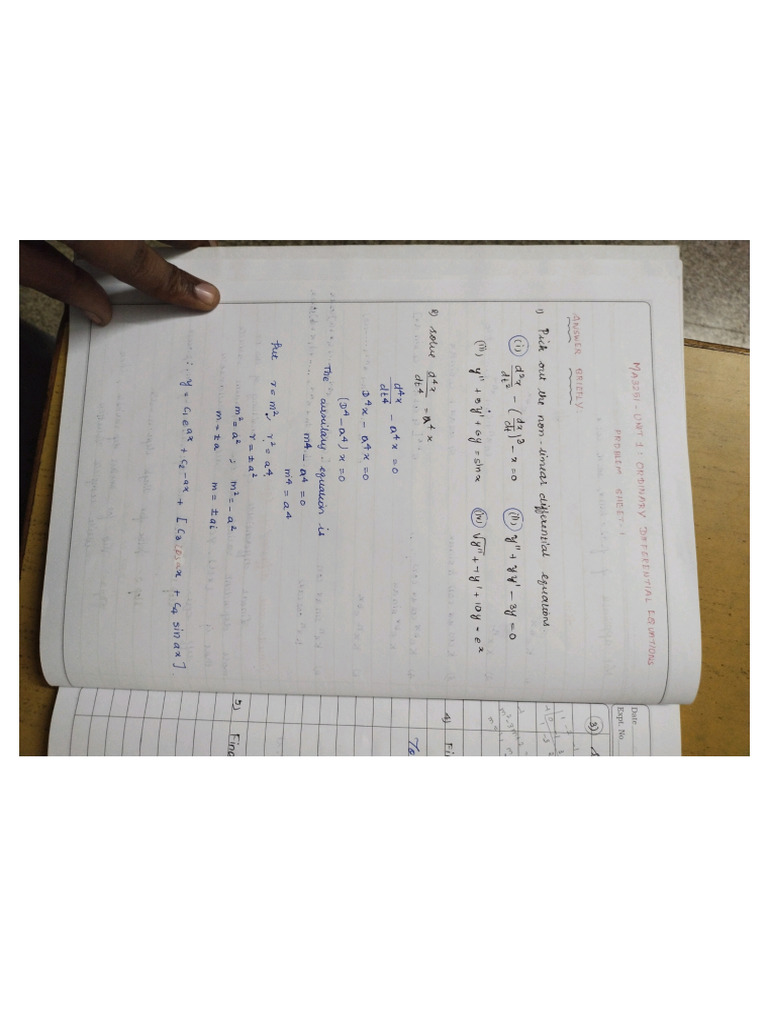 MA3251 - UNIT 1 : ORDINARY DIFFERENTIAL EQUATIONS
PROBLEM SHEET-1
ANSWER BRIEFLY
1) Pick out the non-linear differential equations.
(i) d²x/dt² - (dx/dt)³ - x = 0 (ii) y'' + yy' - 3y = 0
(iii) y'' + 5y' + 6y = sin x (iv) √y'' + 7y' + 10y = eˣ
2) solve d⁴x/dt⁴ = a⁴x
d⁴x/dt⁴ - a⁴x = 0
D⁴x - a⁴x = 0
(D⁴ - a⁴)x = 0
The auxilary equation is
m⁴ - a⁴ = 0
m⁴ = a⁴
Put r = m², r² = a⁴
r = ± a²
m² = a² , m² = -a²
m = ± a m = ± ai
y = C₁e^ax + C₂-ax + [C₃ cos ax + C₄ sin ax].
Date
Expt. No.
3)
4) Fi
To
5) Find